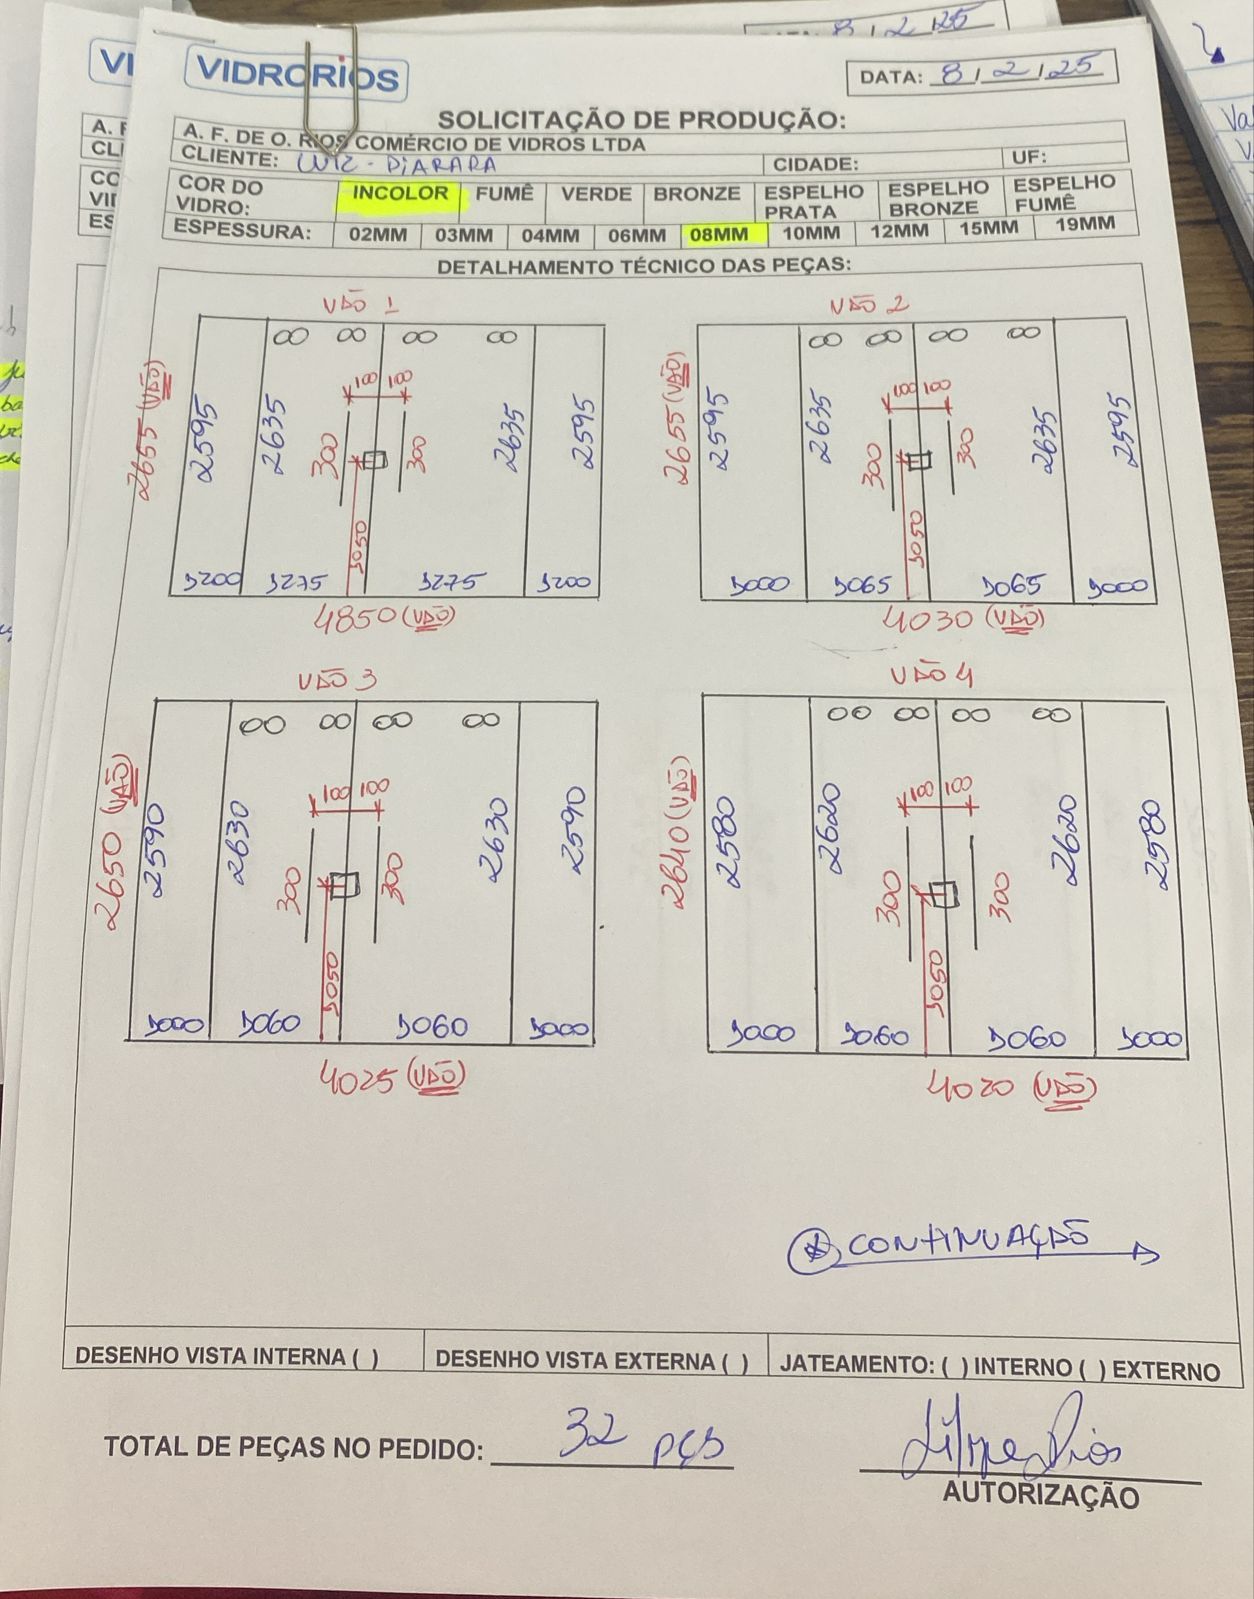 8 / 2 / 25
VIDRORiOS
DATA: 8 / 2 / 25
SOLICITAÇÃO DE PRODUÇÃO:
A. F. DE O. RIOS COMÉRCIO DE VIDROS LTDA
CLIENTE: LUIZ - PIARARA CIDADE: UF:
COR DO VIDRO: INCOLOR FUMÊ VERDE BRONZE ESPELHO PRATA ESPELHO BRONZE ESPELHO FUMÊ
ESPESSURA: 02MM 03MM 04MM 06MM 08MM 10MM 12MM 15MM 19MM
DETALHAMENTO TÉCNICO DAS PEÇAS:
VÃO 1
100 100
2655 (VÃO) 2595 2635 300 300 2635 2595
1050
1200 1275 1275 1200
4850 (VÃO)
VÃO 2
100 100
2655 (VÃO) 2595 2635 300 300 2635 2595
1050
1000 1065 1065 1000
4030 (VÃO)
VÃO 3
100 100
2650 (VÃO) 2590 2630 300 300 2630 2590
1050
1000 1060 1060 1000
4025 (VÃO)
VÃO 4
100 100
2640 (VÃO) 2580 2620 300 300 2620 2580
1050
1000 1060 1060 1000
4020 (VÃO)
* CONTINUAÇÃO
DESENHO VISTA INTERNA ( ) DESENHO VISTA EXTERNA ( ) JATEAMENTO: ( ) INTERNO ( ) EXTERNO
TOTAL DE PEÇAS NO PEDIDO: 32 pçs
Filipe Rios
AUTORIZAÇÃO